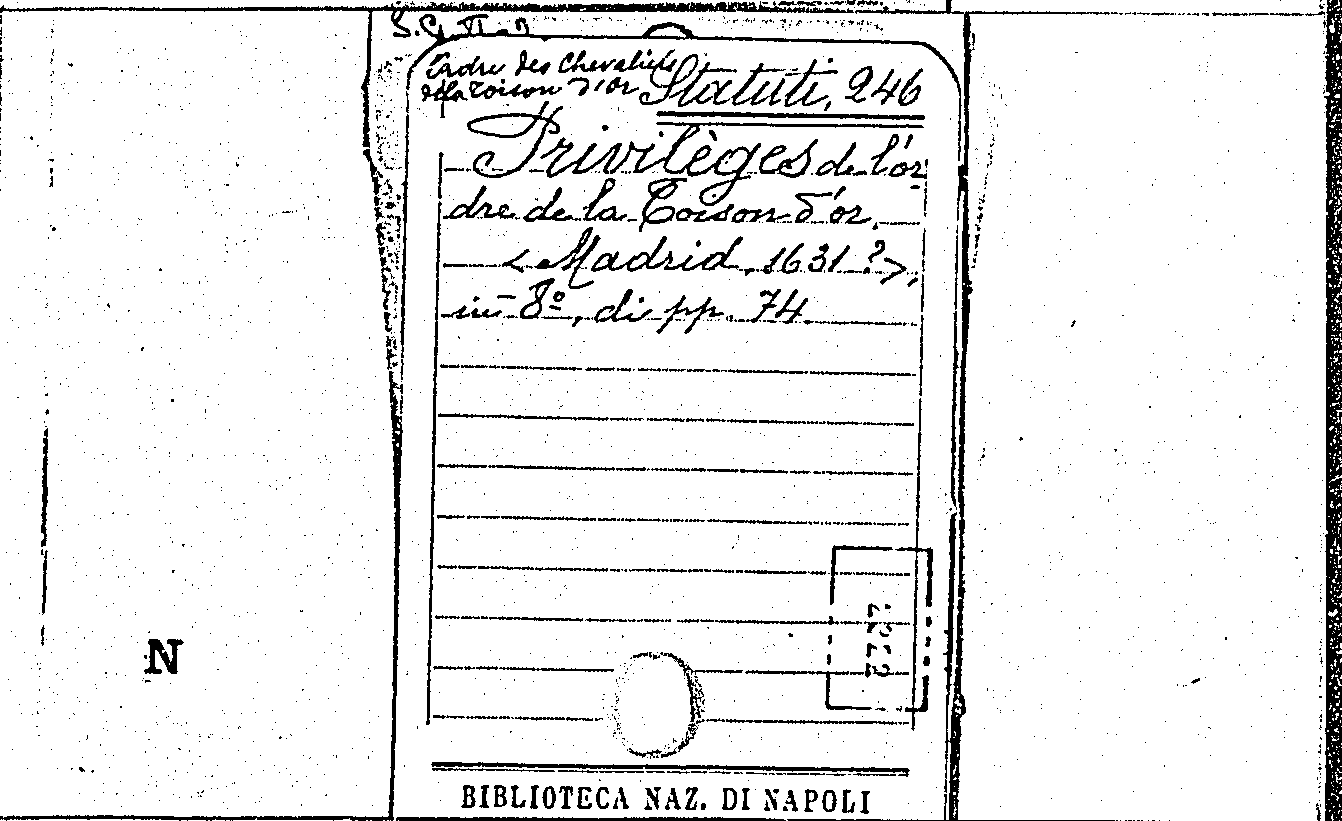 Ordre des Chevaliers
de la Toison d'Or
Statuti, 246
Privilèges de l'or-
dre de la Toison d'or.
<Madrid, 1631?>,
in-8º, di pp. 74.
N
BIBLIOTECA NAZ. DI NAPOLI